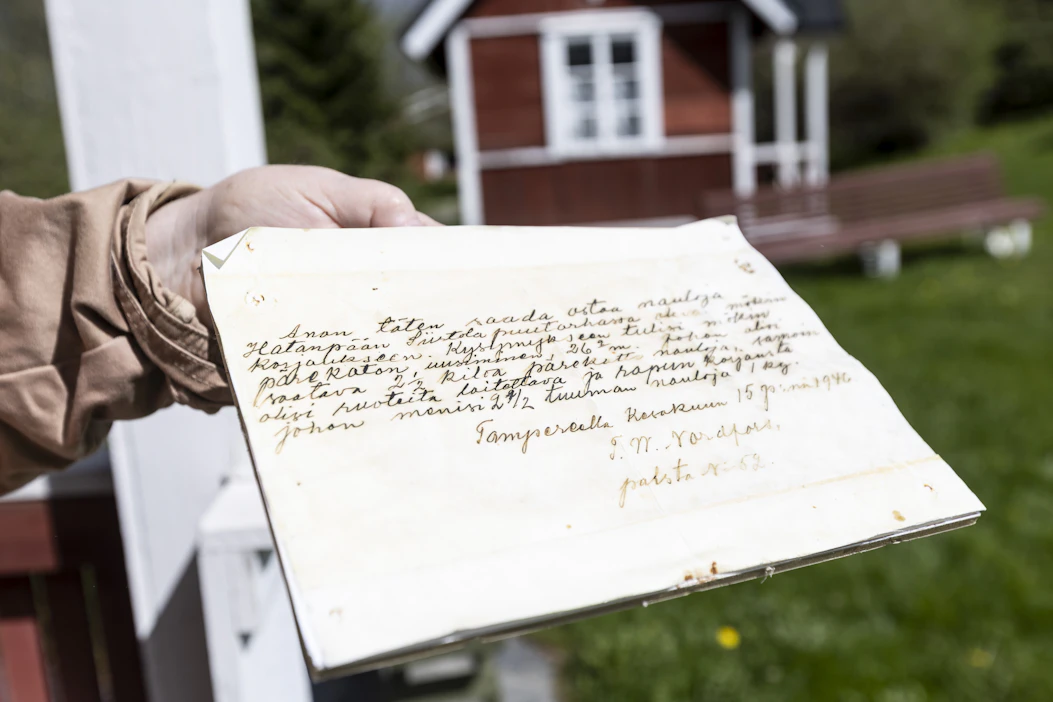 Anon täten saada ostaa nauloja
Hatanpään Siirtolapuutarhassa olevan mökin
korjaukseen. Kysymykseen tulisi mökin
pärekaton, uusiminen, 26 m². johon olisi
saatava 2½ kiloa pärekatto nauloja, sapoin
olisi ruoteita laitettava ja rapun korjausta
johon menisi 2½ tuuman nauloja 1 kg
Tampereella Kesäkuun 15 p:nä 1946
T. W. Nordfors.
palsta N: 52.